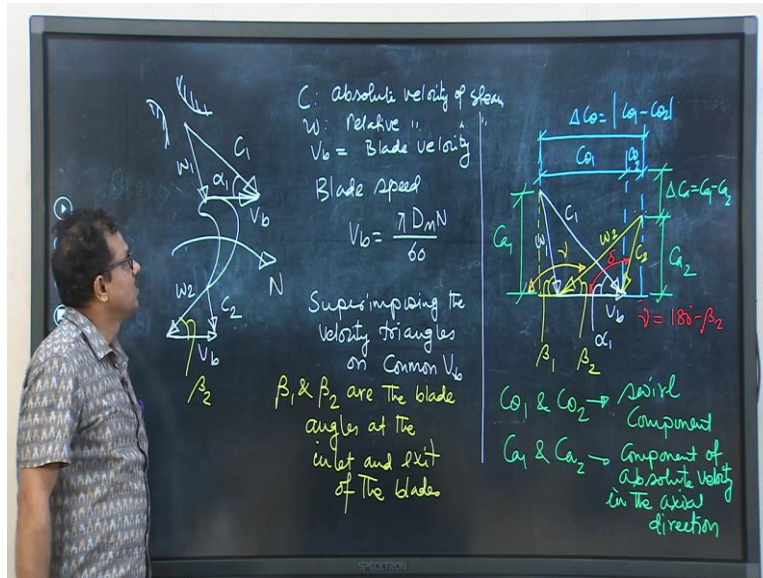 C: absolute velocity of steam
W: relative " " "
Vb = Blade velocity
Blade speed
Vb = π Dm N / 60
Superimposing the
velocity triangles
on Common Vb
β1 & β2 are the blade
angles at the
inlet and exit
of the blades
W1
C1
α1
Vb
N
W2
C2
Vb
β2
ΔCθ = |Cθ1 - Cθ2|
Cθ1
Cθ2
ΔCa = Ca1 - Ca2
Ca1
C1
W1
ν
W2
δ
C2
Ca2
Vb
α1
β1
β2
ν = 180° - β2
Cθ1 & Cθ2 → swirl
Component
Ca1 & Ca2 → Component of
absolute velocity
in the axial
direction
SPECTRON